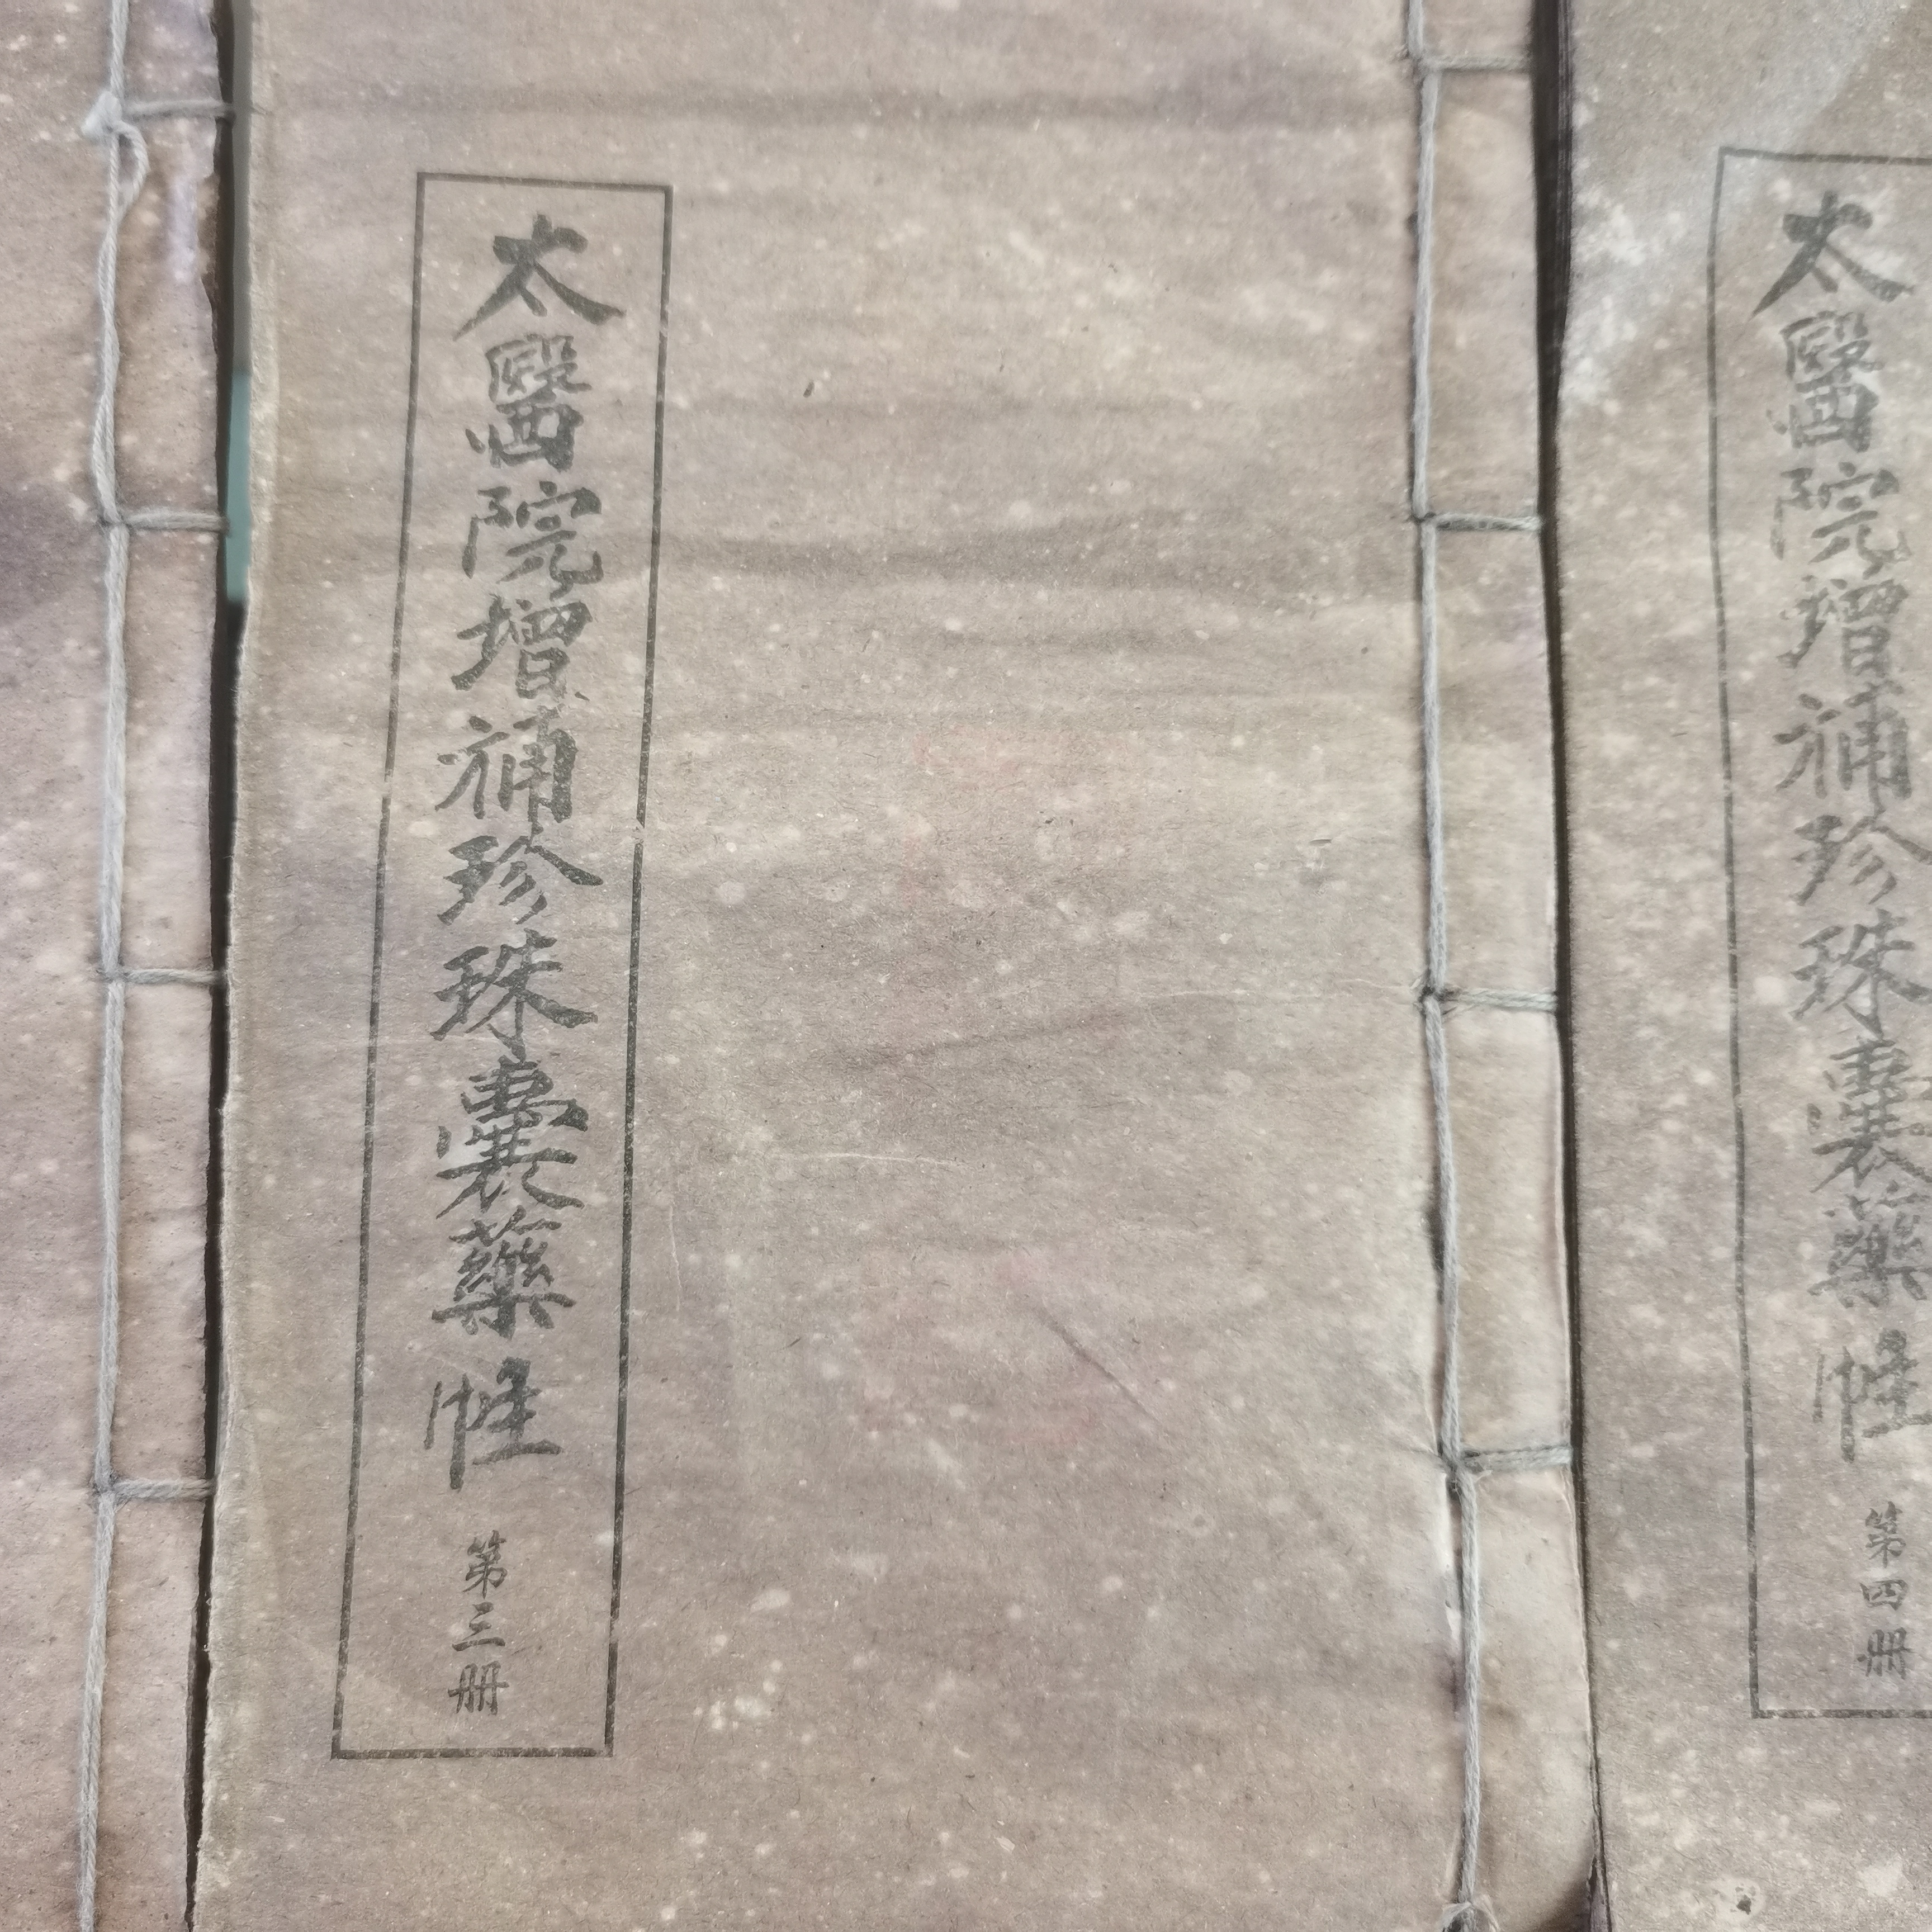 太醫院增補珍珠囊藥性
第三册
太醫院增補珍珠囊藥性
第四册